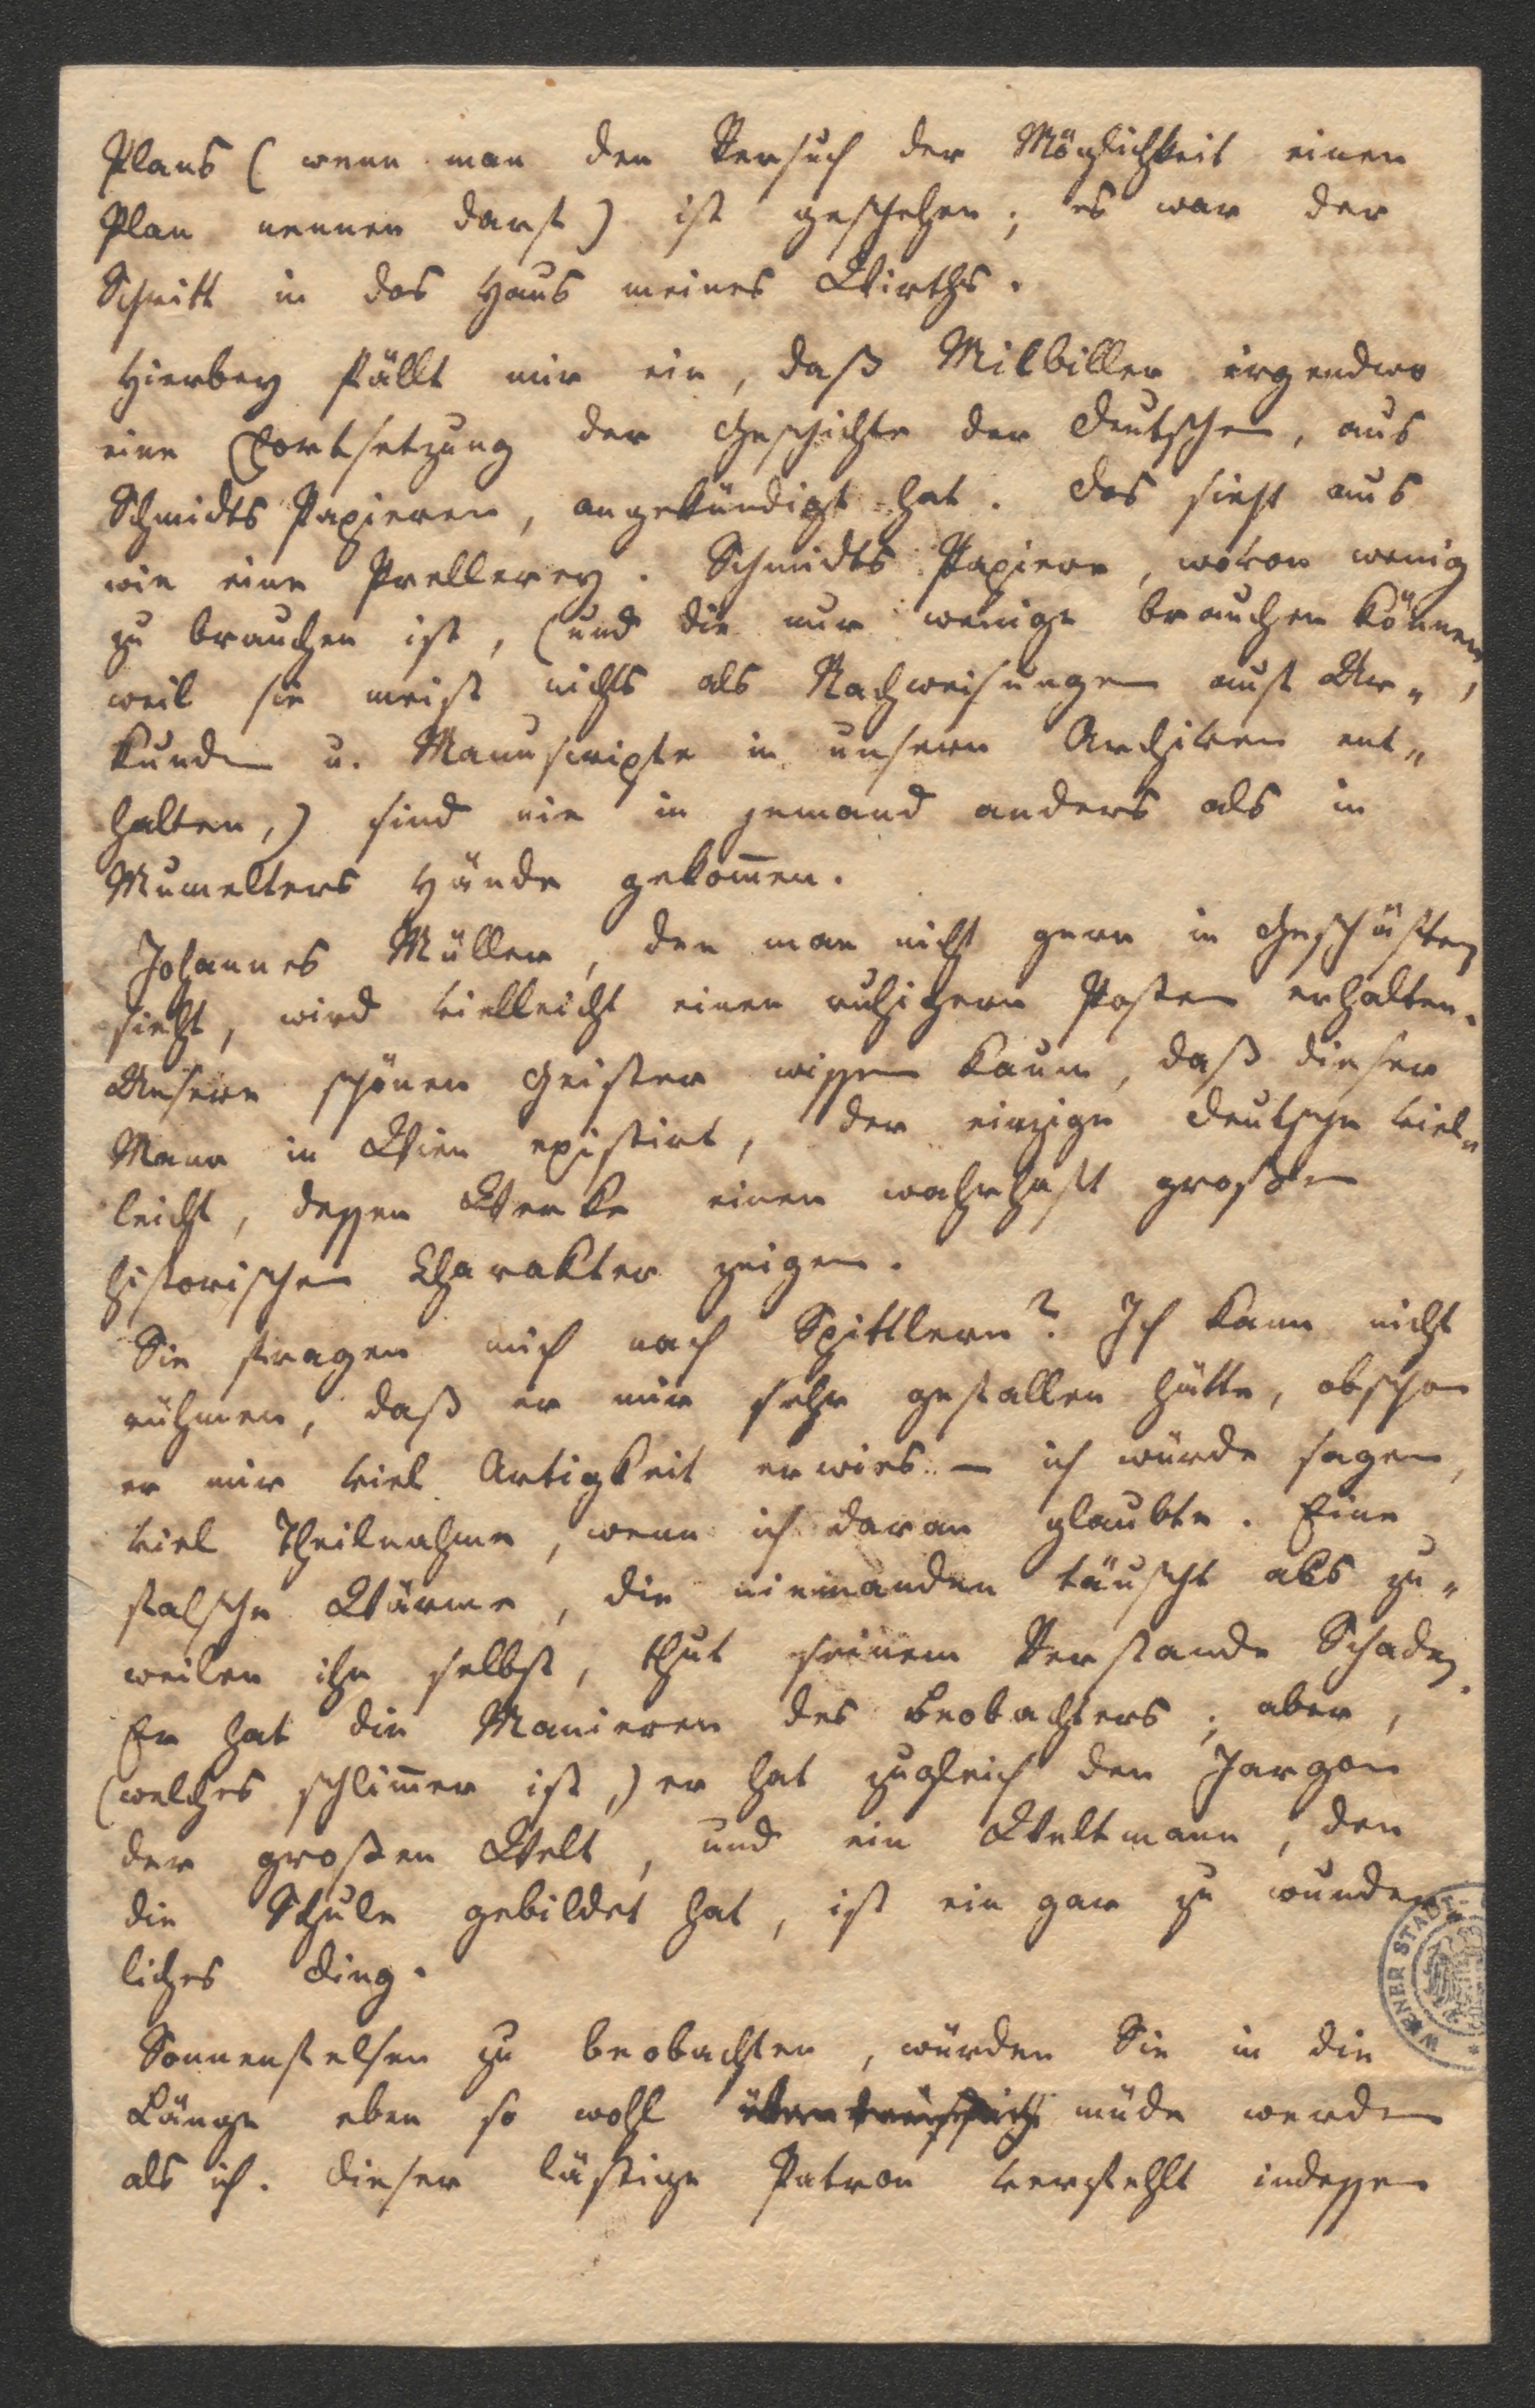 Plans (wenn man den Versuch der Möglichkeit einen
Plan nennen darf) ist geschehen; es war der
Schritt in das Haus meines Wirths.
Hierbey fällt mir ein, daß Milbiller irgendwo
eine Fortsetzung der Geschichte der Deutschen, aus
Schmidts Papieren, angekündigt hat. Das sieht aus
wie eine Prellerey. Schmidts Papiere, wovon wenig
zu brauchen ist, (und die nur wenige brauchen können,
weil sie meist nichts als Nachweisungen auf Ur„
kunden u. Manuscripte in unsern Archiven ent„
halten,) sind nie in jemand anders als in
Mumelters Hände gekom̅en.
Johannes Müller, den man nicht gern in Geschäften
sieht, wird vielleicht einen ruhigern Posten erhalten.
Unsere schönen Geister wissen kaum, daß dieser
Mann in Wien existirt, der einzige Deutsche viel„
leicht, dessen Werke einen wahrhaft großen
historischen Charakter zeigen.
Sie fragen mich nach Spittlern? Ich kann nicht
rühmen, daß er mir sehr gefallen hätte, obschon
er mir viel Artigkeit erwies – ich würde sagen,
viel Theilnahme, wenn ich daran glaubte. Eine
falsche Wärme, die niemanden täuscht als zu„
weilen ihn selbst, thut seinem Verstande Schaden.
Er hat die Manieren des Beobachters; aber,
(welches schlim̅er ist,) er hat zugleich den Jargon
der großen Welt, und ein Weltmann, den
die Schule gebildet hat, ist ein gar zu wunder„
liches Ding.
Sonnenfelsen zu beobachten, würden Sie in die
Länge eben so wohl müde werden
als ich. Dieser lästige Patron verfehlt indessen
WIENER STADT-